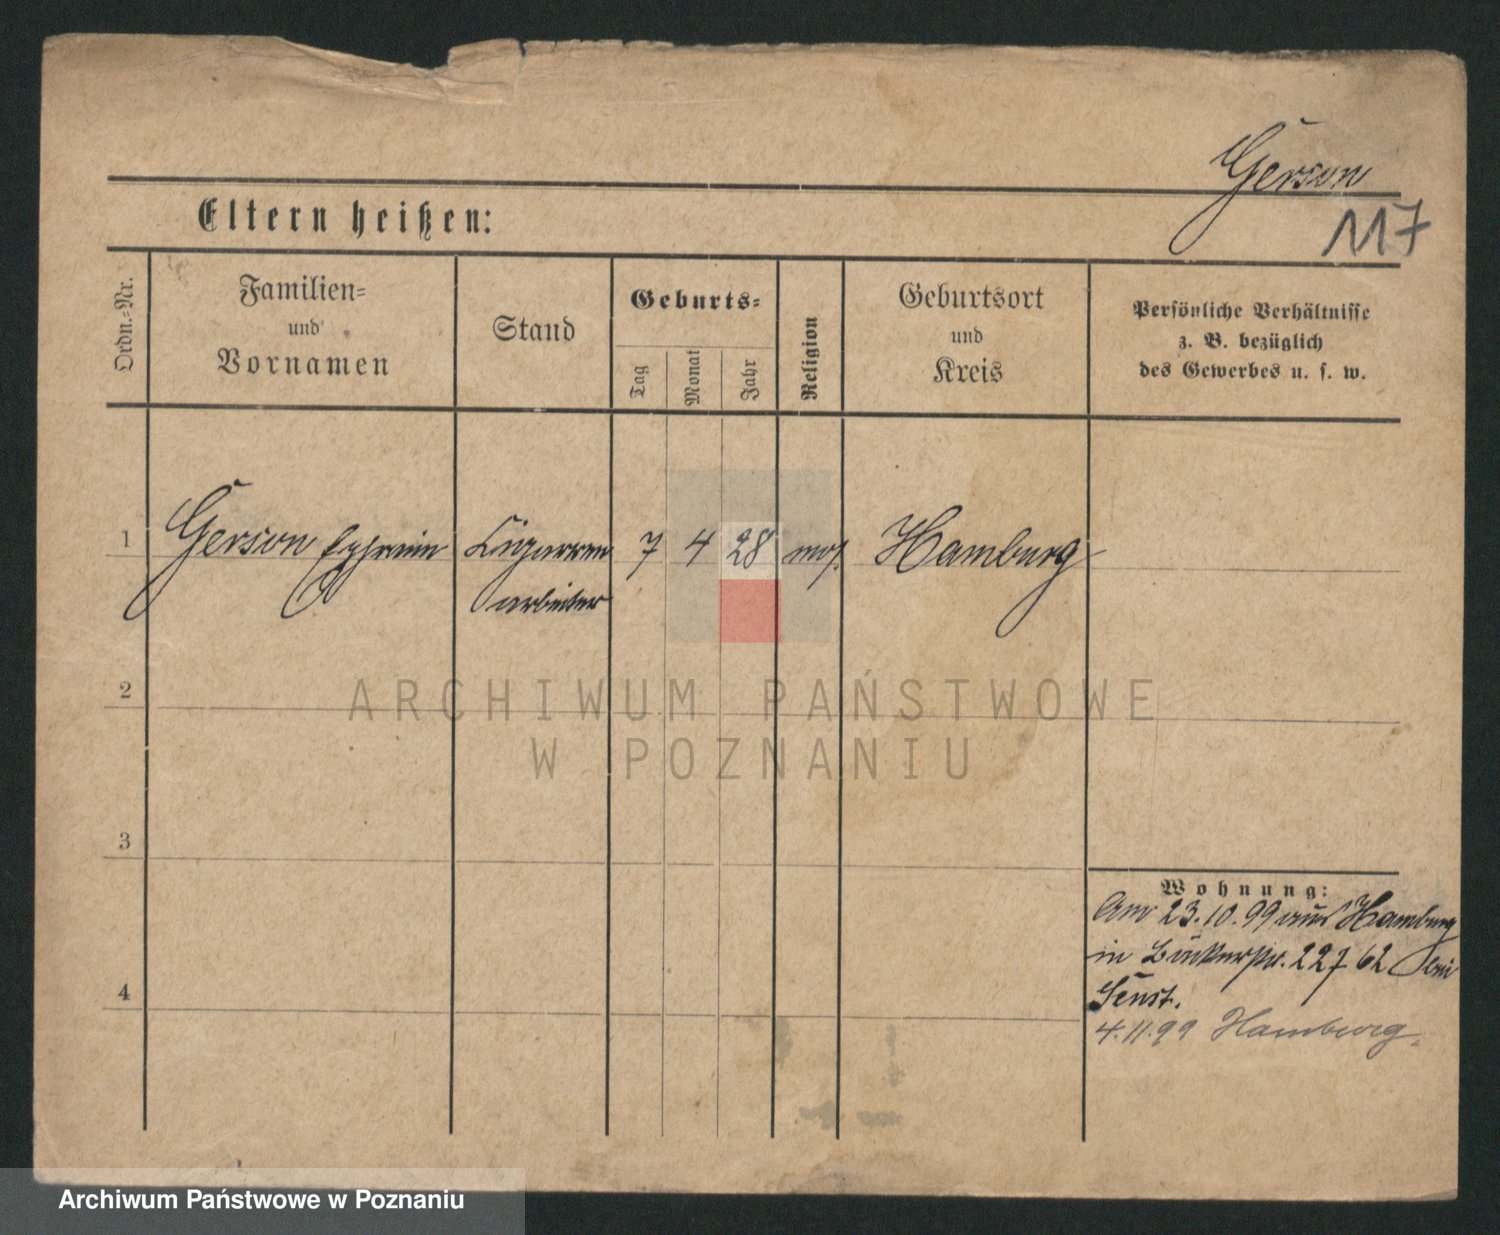 Gerson
117
Eltern heißen:
Ordn.=Nr.
Familien=
und
Vornamen
Stand
Geburts=
Tag
Monat
Jahr
Religion
Geburtsort
und
Kreis
Persönliche Verhältnisse
z. B. bezüglich
des Gewerbes u. s. w.
1 Gerson Ephraim Cigarren 7 4 28 mos. Hamburg
arbeiter
2
ARCHIWUM PAŃSTWOWE
W POZNANIU
3
Wohnung:
Am 23.10.99 aus Hamburg
in 227 62 bei
4
4.11.99 Hamburg.
Archiwum Państwowe w Poznaniu